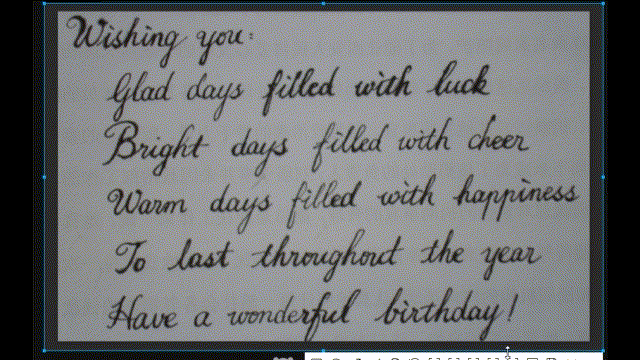 Wishing you:
Glad days filled with luck
Bright days filled with cheer
Warm days filled with happiness
To last throughout the year
Have a wonderful birthday!